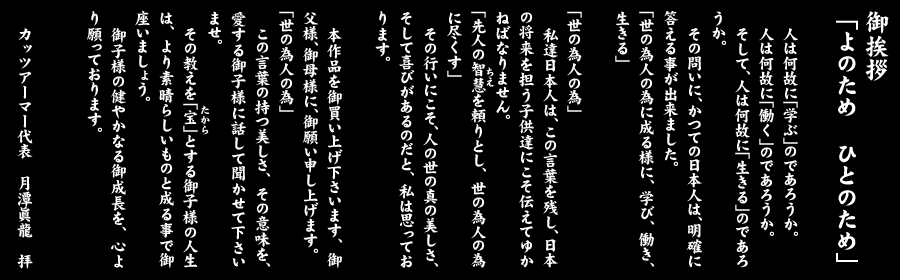 御挨拶
「よのため　ひとのため」
人は何故に「学ぶ」のであろうか。
人は何故に「働く」のであろうか。
そして、人は何故に「生きる」のであろ
うか。
その問いに、かつての日本人は、明確に
答える事が出来ました。
「世の為人の為に成る様に、学び、働き、
生きる」
「世の為人の為」
私達日本人は、この言葉を残し、日本
の将来を担う子供達にこそ伝えてゆか
ねばなりません。
「先人の智慧を頼りとし、世の為人の為
に尽くす」
その行いにこそ、人の世の真の美しさ、
そして喜びがあるのだと、私は思ってお
ります。
本作品を御買い上げ下さいます、御
父様、御母様に、御願い申し上げます。
「世の為人の為」
この言葉の持つ美しさ、その意味を、
愛する御子様に話して聞かせて下さい
ませ。
その教えを「宝」とする御子様の人生
は、より素晴らしいものと成る事で御
座いましょう。
御子様の健やかなる御成長を、心よ
り願っております。
カッツアーマー代表　月潭眞龍　拝